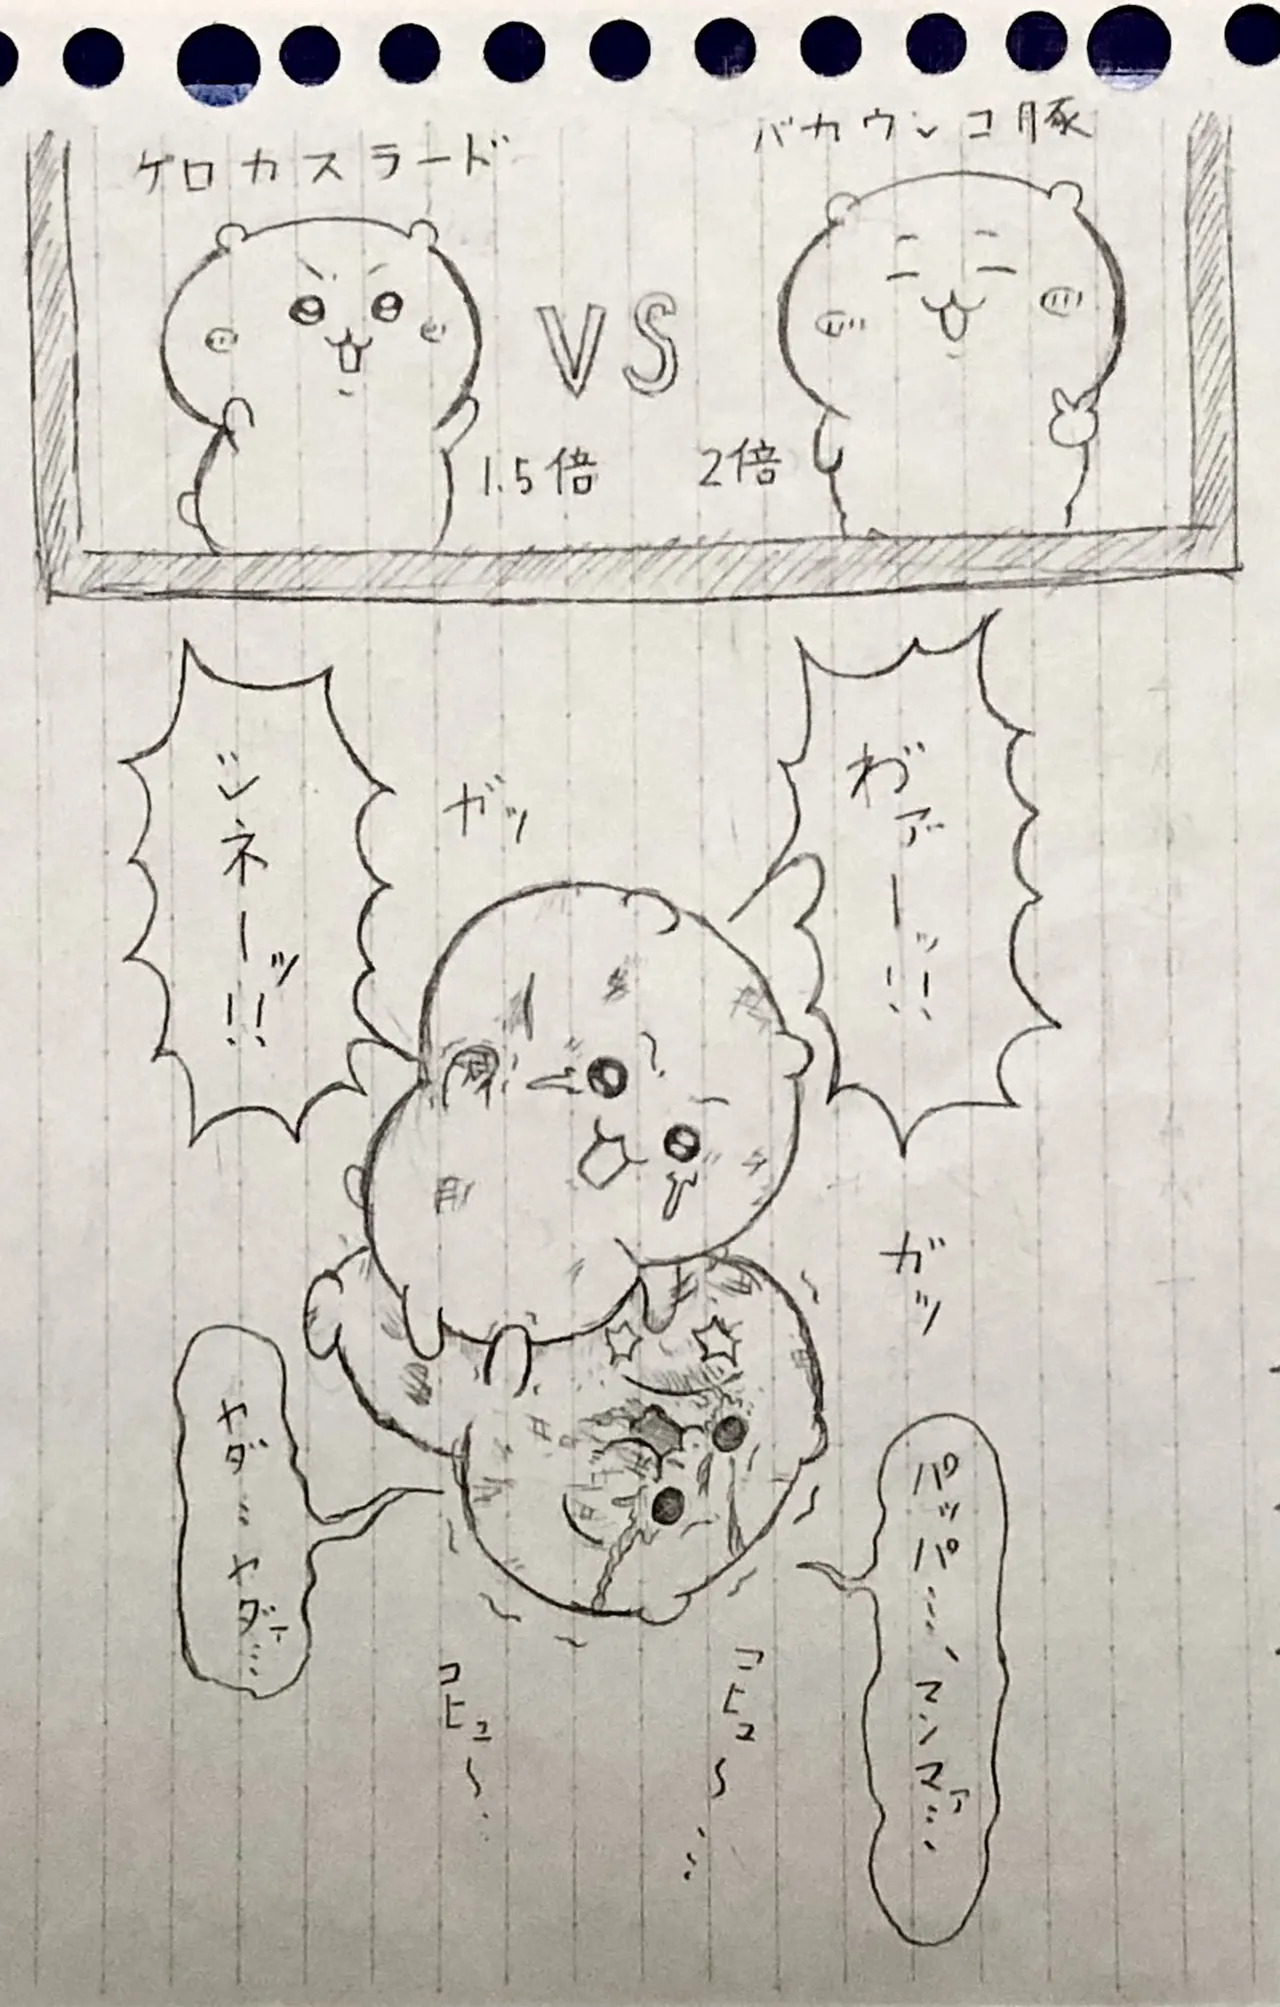 ゲロカスラード
バカウンコ豚
VS
1.5倍
2倍
わ゛ァーッ!!
シネーッ!!
ガッ
ガッ
パッパ……、マンマァ……
ヤダ…ヤダァ…
コヒュ〜…
コヒュ〜…